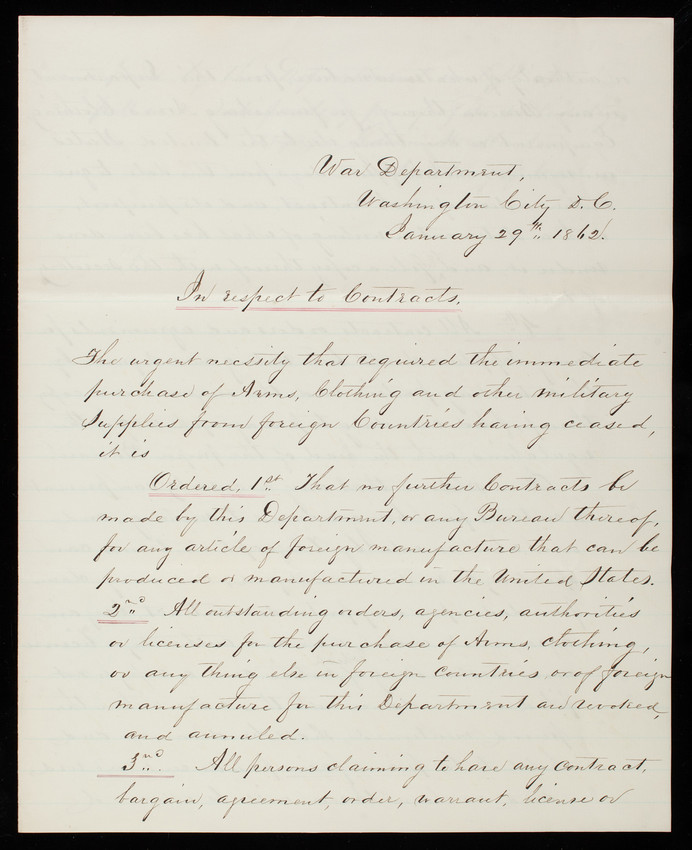 War Department,
Washington City D.C.
January 29th. 1862.
In respect to Contracts.
The urgent necssity that required the immediate
purchase of Arms, Clothing and other military
Supplies from foreign Countries having ceased,
it is
Ordered, 1st. That no further Contracts be
made by this Department, or any Bureau thereof,
for any article of foreign manufacture that can be
produced or manufactured in the United States.
2nd. All outstanding orders, agencies, authorities
or licenses for the purchase of Arms, clothing,
or any thing else in foreign countries, or of foreign
manufacture for this Department are revoked,
and annuled.
3nd. All persons claiming to have any contract,
bargain, agreement, order, warrant, license or